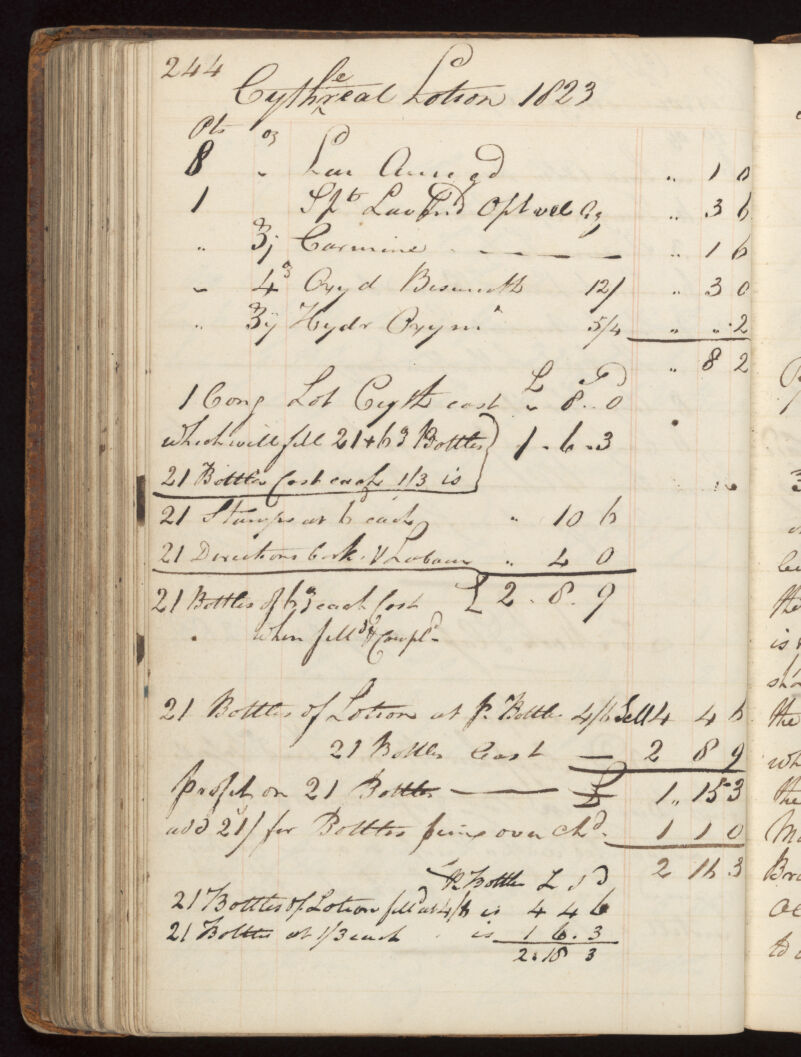 244
Cytherëal Lotion 1823
Pts oz
8 „ „ 1 0
1 Spts Lavend Opt vel „ 3 6
„ ʒj Carmine „ 1 6
„ 4 ℥ Oxyd Bismuth 12/ „ 3 0
„ ʒij Hydr Oxym 5/4 „ „ 2
„ 8 2
£ S D
1 Cong Lot Cyth cost „ 8 „ 0
which will fill 21 + 6 ℥ Bottles 1 . 6 . 3
21 Bottles Cost each 1/3 is
21 Stamps at 6 each „ 10 6
21 Directions Cork & Labour „ 4 0
21 Bottles of 6 ℥ each Cost £ 2 . 8 . 9
when filld & Compld
21 Bottles of Lotion at pr Bottle 4/6 Sell 4 4 6
21 Bottles Cost — 2 8 9
profit on 21 Bottles — £ 1 „ 15 3
add 21/ for Bottles being over Chd. 1 1 0
2 16 3
pr Bottle £ S D
21 Bottles of Lotion filld at 4/6 is 4 4 6
21 Bottles at 1/3 each is 1 6 . 3
2 . 18 3
the
is
the
wh
the
Bro
to